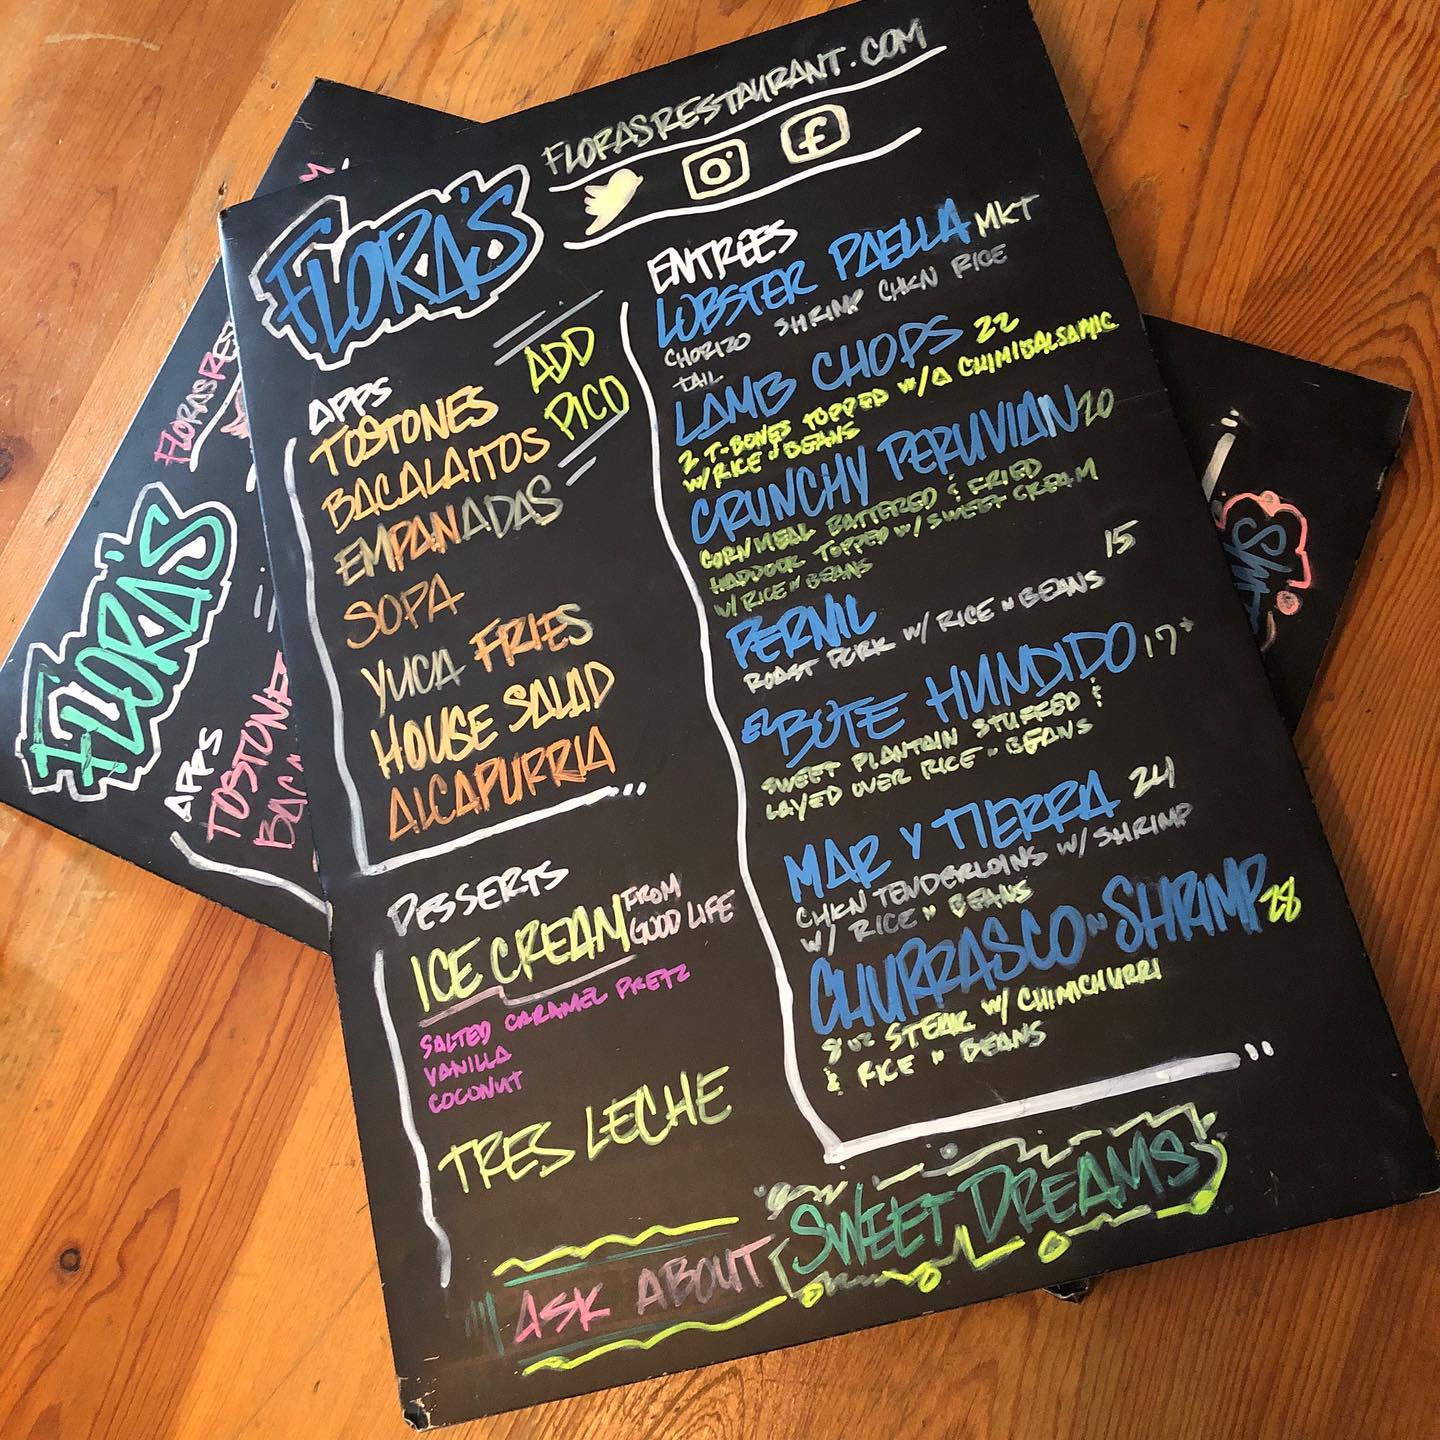 FLORASRESTAURANT.COM
FLORA'S
ADD
PICO
APPS
TOSTONES
BACALAITOS
EMPANADAS
SOPA
YUCA FRIES
HOUSE SALAD
ALCAPURRIA
DESSERTS
ICE CREAM FROM
GOOD LIFE
SALTED CARAMEL PRETZ
VANILLA
COCONUT
TRES LECHE
ENTREES
LOBSTER PAELLA MKT
CHORIZO SHRIMP CHKN RICE
TAIL
LAMB CHOPS 22
2 T-BONES TOPPED W/A CHIMIBALSAMIC
W/ RICE N BEANS
CRUNCHY PERUVIAN 20
CORNMEAL BATTERED & FRIED
HADDOCK TOPPED W/ SWEET CREAM
W/ RICE N BEANS
PERNIL 15
ROAST PORK W/ RICE N BEANS
EL BOTE HUNDIDO 17+
SWEET PLANTAIN STUFFED &
LAYED OVER RICE N BEANS
MAR Y TIERRA 24
CHKN TENDERLOINS W/ SHRIMP
W/ RICE N BEANS
CHURRASCO N SHRIMP 28
8 OZ STEAK W/ CHIMICHURRI
& RICE N BEANS
ASK ABOUT SWEET DREAMS
FLORASRES
FLORA'S
APPS
TOSTONE
BACA